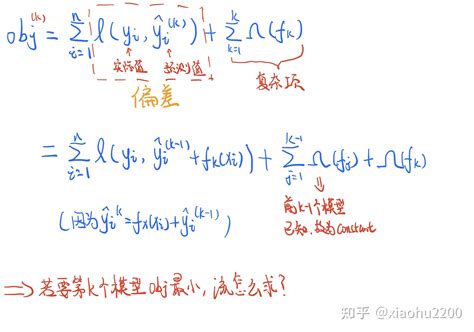 obj^(k) = Σ_{i=1}^{n} l(y_i, ŷ_i^(k)) + Σ_{k=1}^{k} Ω(f_k)
实际值 预测值
偏差
复杂项
= Σ_{i=1}^{n} l(y_i, ŷ_i^(k-1) + f_k(x_i)) + Σ_{j=1}^{k-1} Ω(f_j) + Ω(f_k)
前k-1个模型
(因为ŷ_i^k = f_k(x_i) + ŷ_i^(k-1))
已知,故为constant
⇒ 若要第k个模型obj最小,该怎么求?
知乎 @xiaohu2200